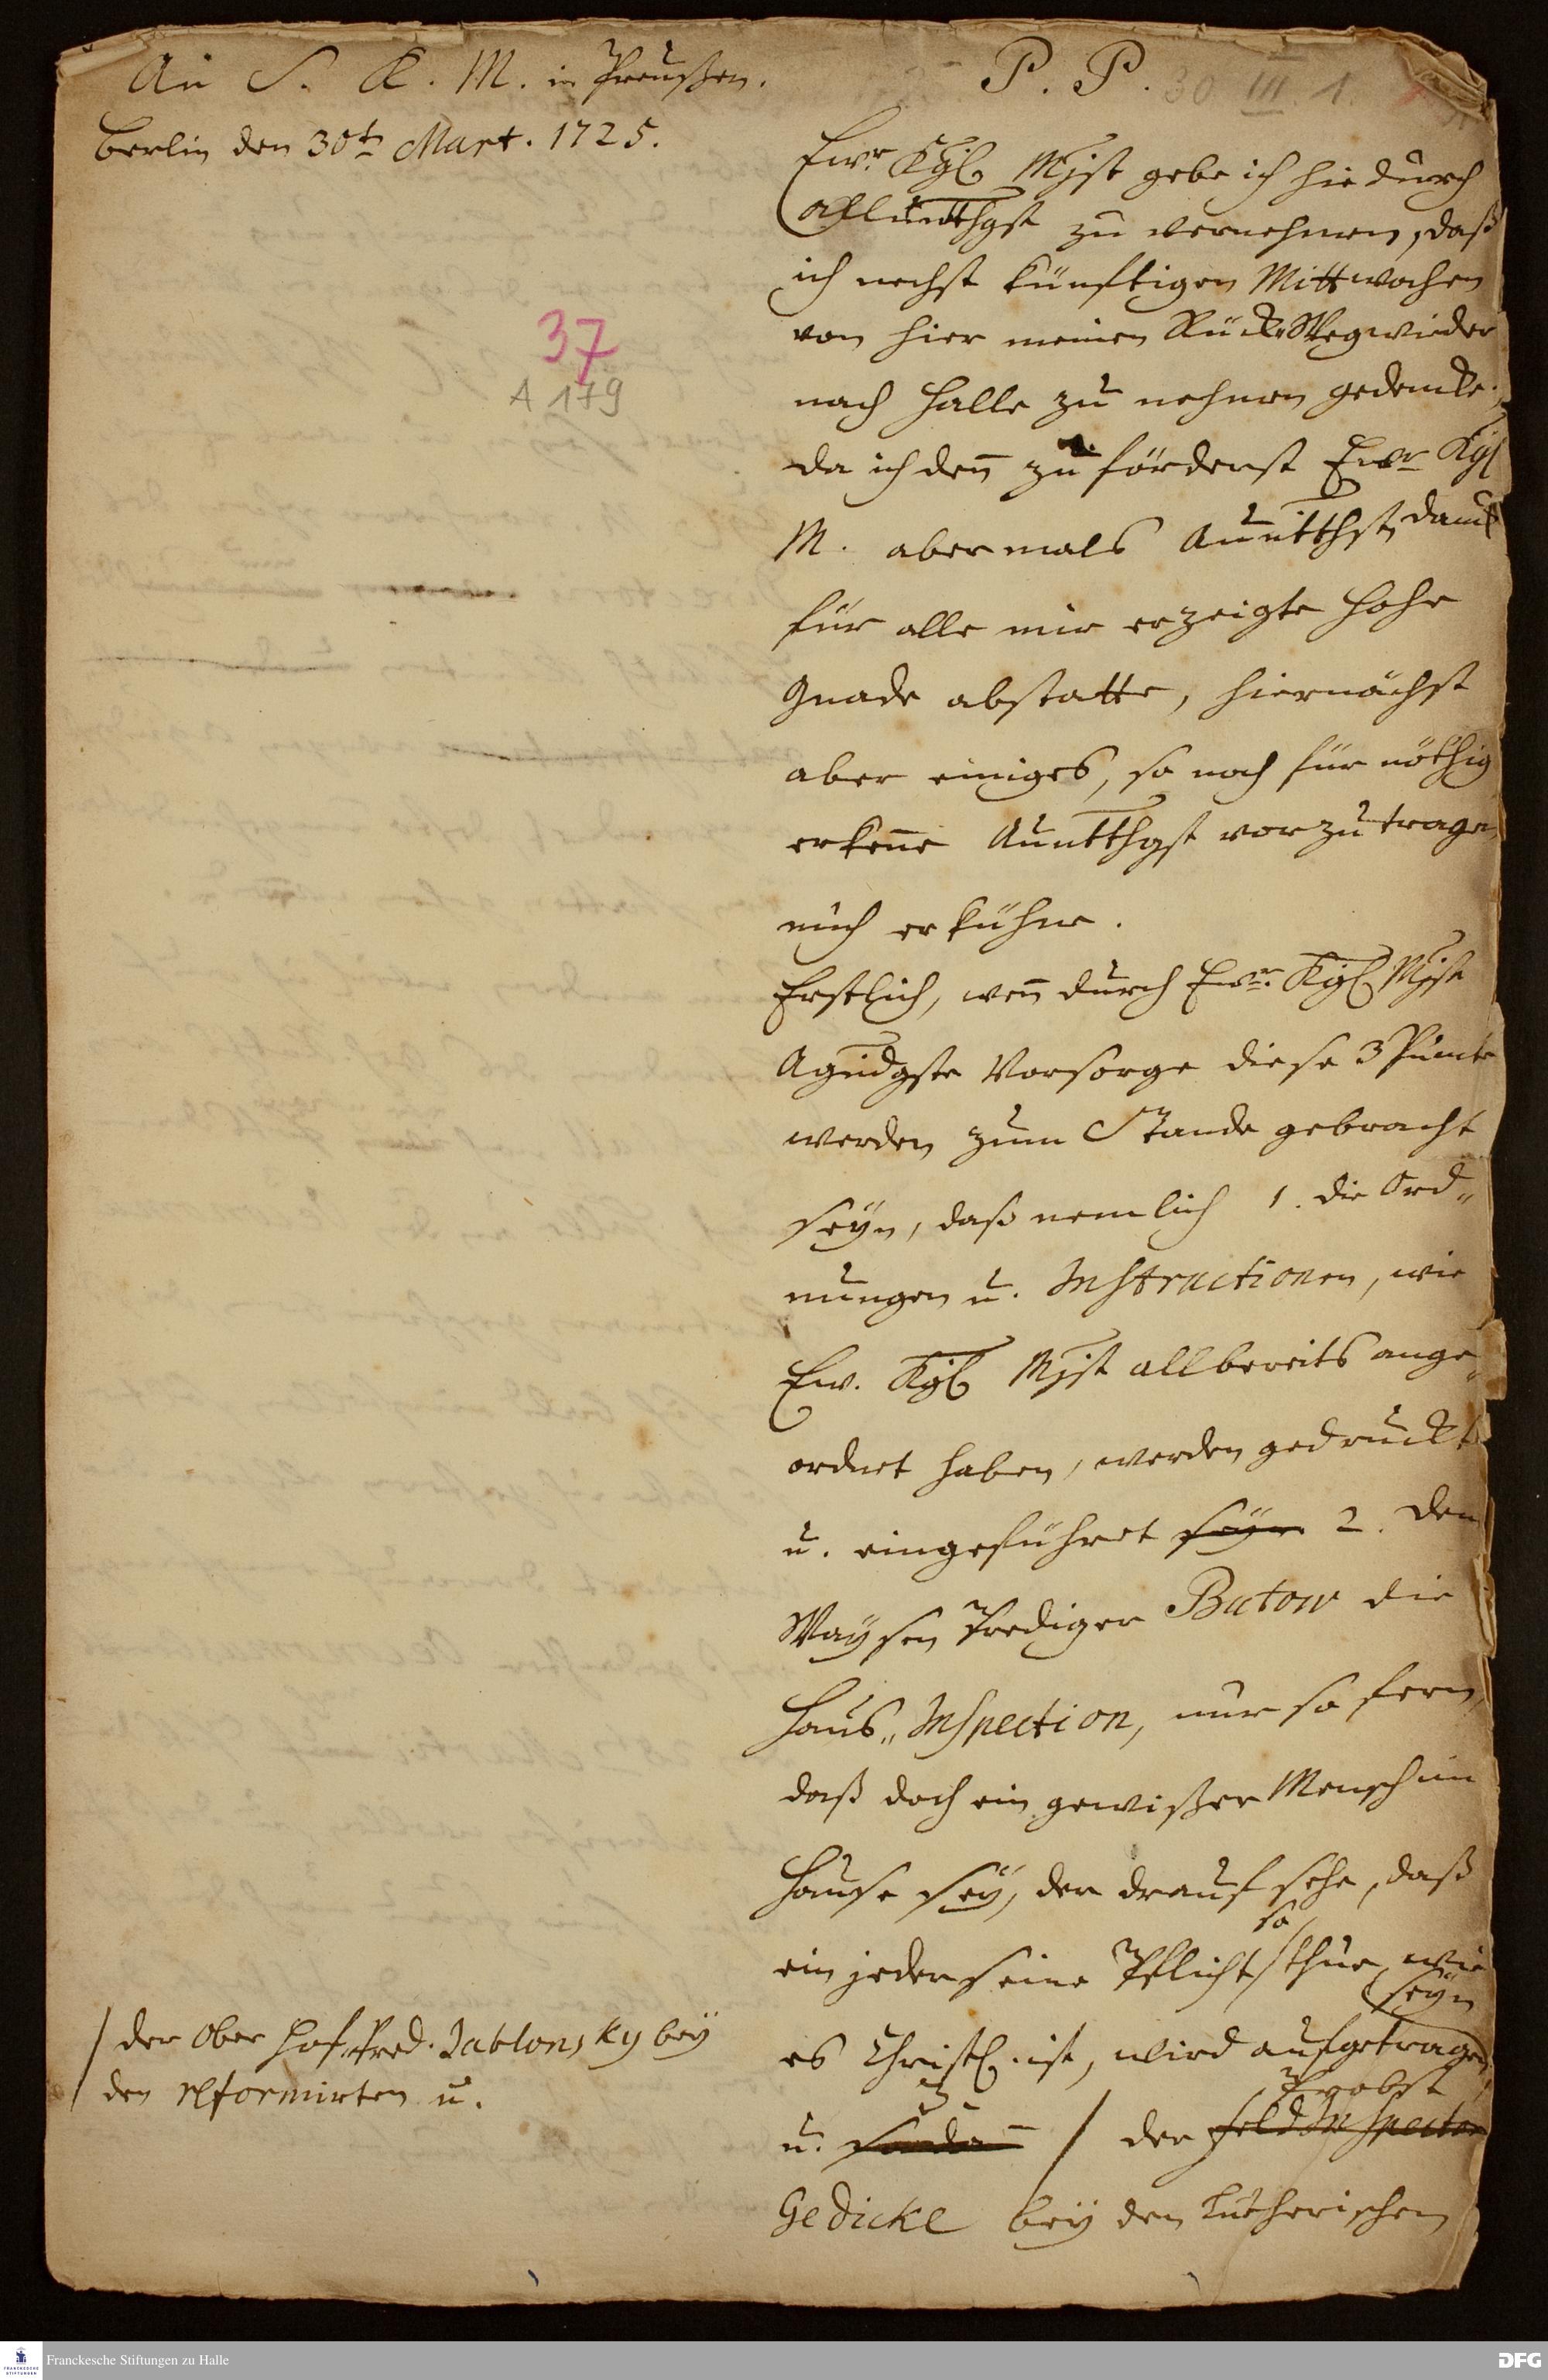 An S. K. M. in Preußen.
Berlin den 30t. Mart. 1725.
P. P.
30 III. 1.
37
A 179
Ewr. Kgl. Mjst gebe ich hiedurch
allunthgst zu vernehmen, daß
ich nechst künftigen Mittwochen
von hier meinen Rück-Weg wieder
nach Halle zu nehmen gedencke.
da ich den̄ zuförderst Ewr Kgl
M. abermals Aunthst danck
für alle mir erzeigte hohe
Gnade abstatte, hiernächst
aber einiges, so noch für nöthig
erken̄e Aunthgst vorzutragen
mich erkühne.
Erstlich, wen̄ durch Ewr. Kgl. Mjst
Agndgste Vorsorge diese 3 Puncte
werden zum Stande gebracht
seyn, daß nemlich 1. die Ord„
nungen u. Instructionen, wie
Ew. Kgl. Mjst allbereits ange„
ordnet haben, werden gedruckt
u. eingeführet seyn 2. dem
Waysen Prediger Butow die
Haus„ Inspection, nur so fern,
daß doch ein gewißer Mensch im
Hause sey, der drauf sehe, daß
so
ein jeder seine Pflicht / thue, wie
seyn
es Christl. ist, wird aufgetragen
Probst
u. / der Feld Inspector
Gedicke bey den Lutherischen
/ der Ober Hof-Pred. Jablonsky bey
den reformirten u.
Franckesche Stiftungen zu Halle
FRANCKESCHE
STIFTUNGEN
DFG